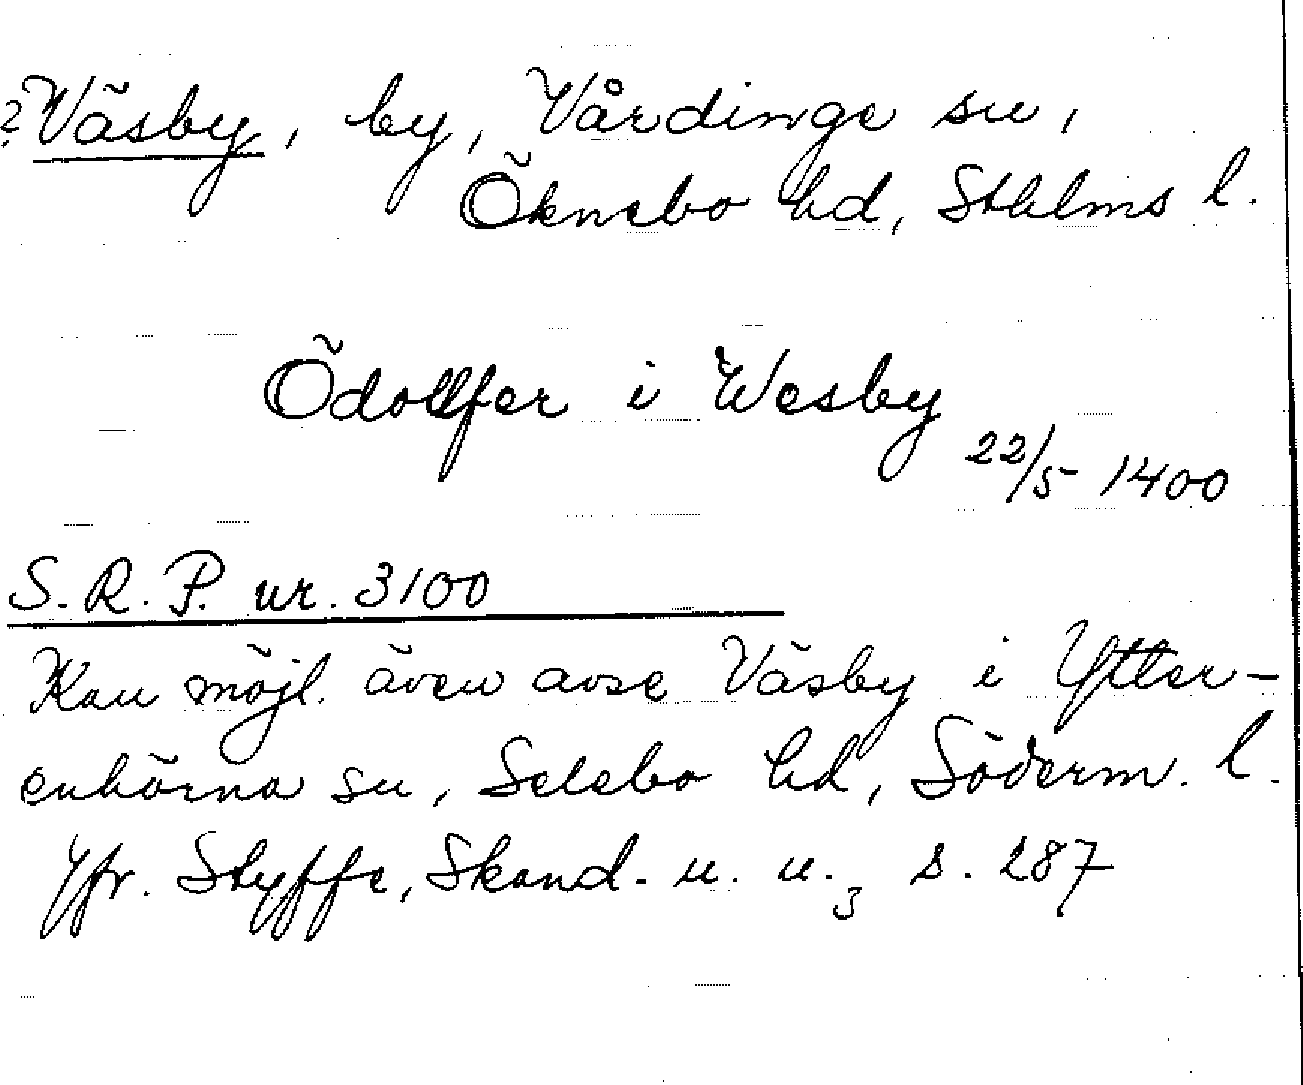 ? Väsby, by, Vårdinge sn,
Öknebo hd, Sthlms l.
Ödollfer i Wesby
22/5 1400
S. R. P. nr. 3100
Kan möjl. även avse Väsby i Ytter-
enhörna sn, Selebo hd, Söderm. l.
Jfr. Styffe, Skand. u. u.3 s. 287